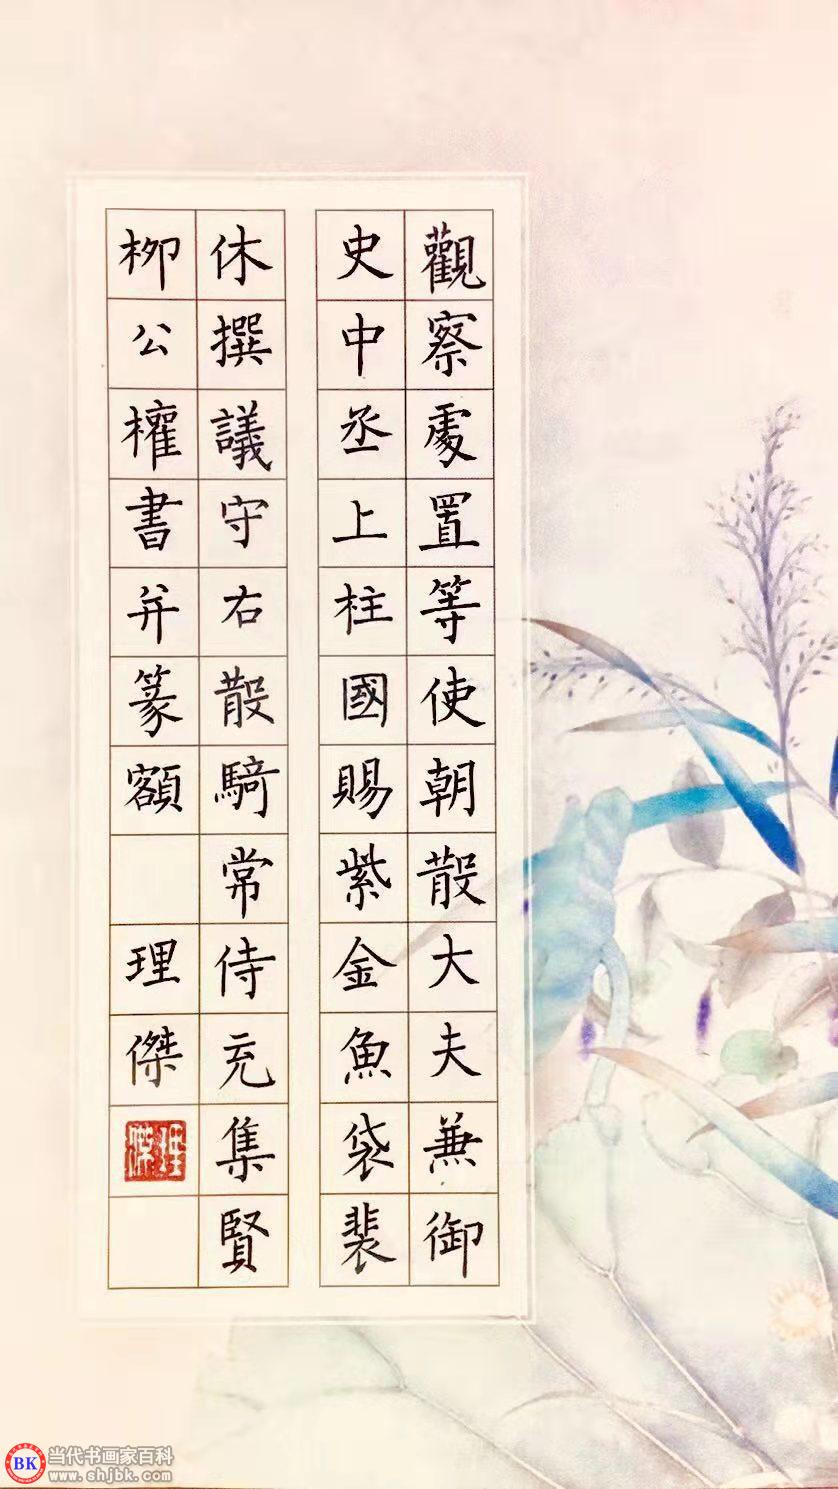 觀察處置等使朝散大夫兼御
史中丞上柱國賜紫金魚袋裴
休撰議守右散騎常侍充集賢
柳公權書并篆額 理傑
理傑
BK
当代书画家百科
www.shjbk.com